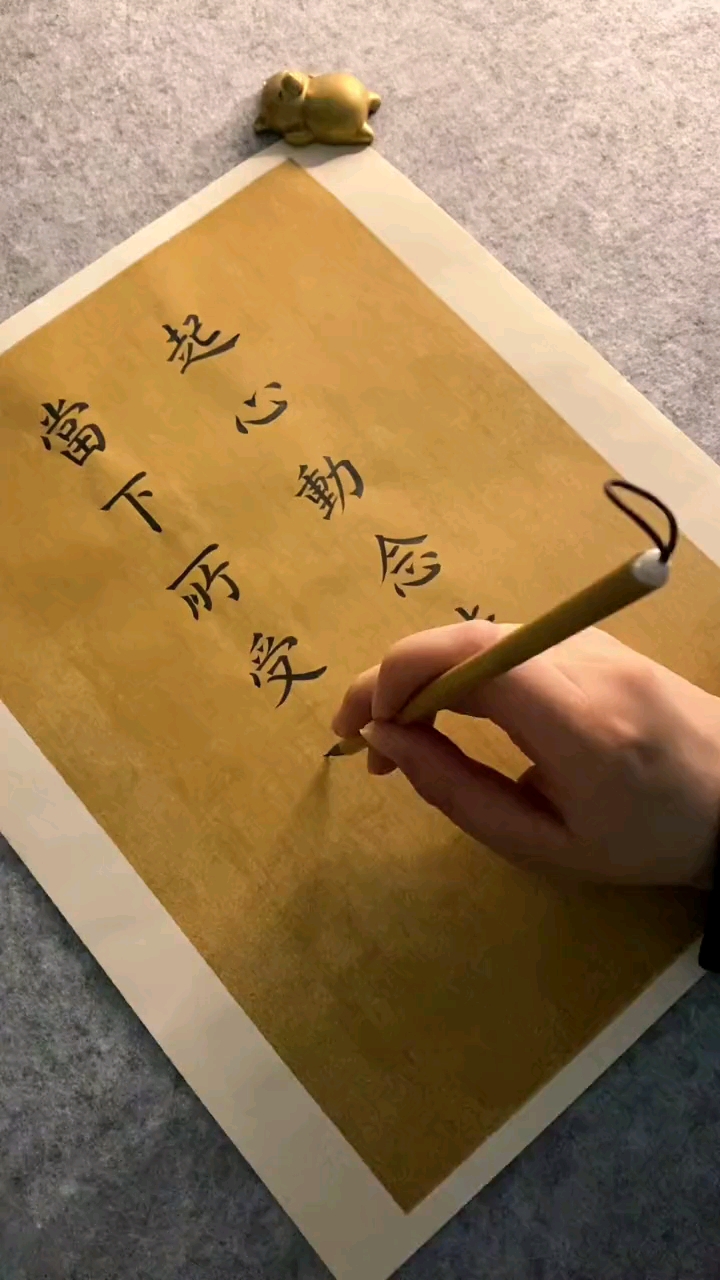 起心動念
當下所受